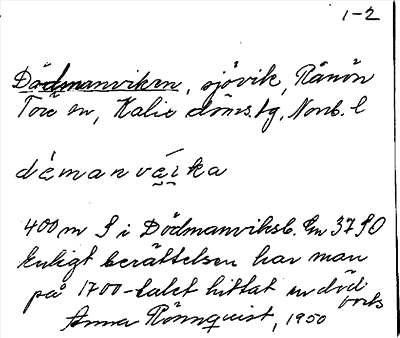 1-2
Dödmanviken, sjövik, Rånön
Töre sn, Kalix doms.tg, Norrb. l
dèmanvei̯ka
400 m S i Dödmanviksb. Gm 37 SO
Enligt berättelsen har man
på 1700-talet hittat en död
Anna Rönnquist, 1950